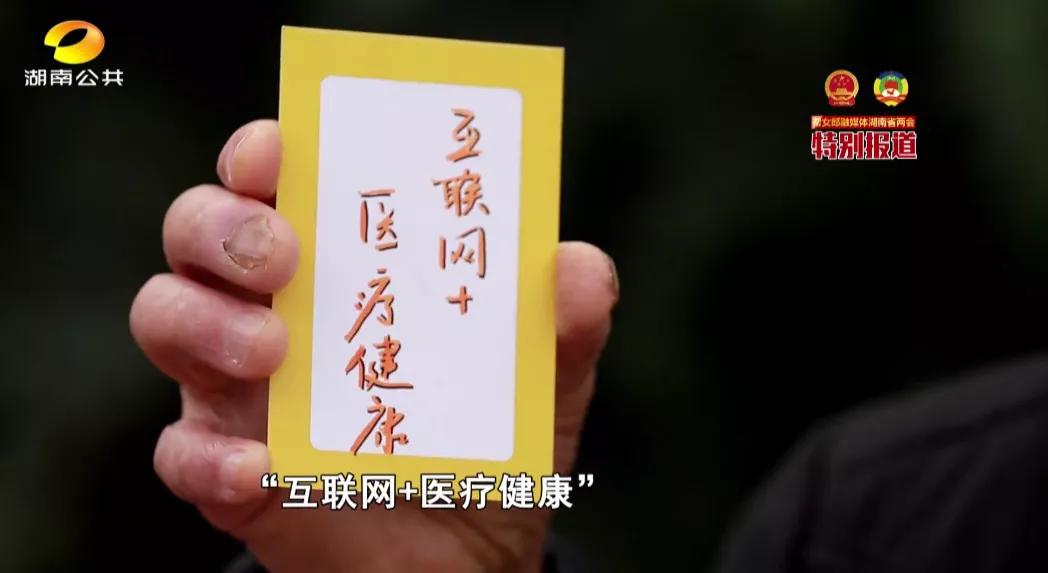 湖南公共
帮女郎融媒体湖南省两会
特别报道
互联网+
医疗健康
“互联网+医疗健康”